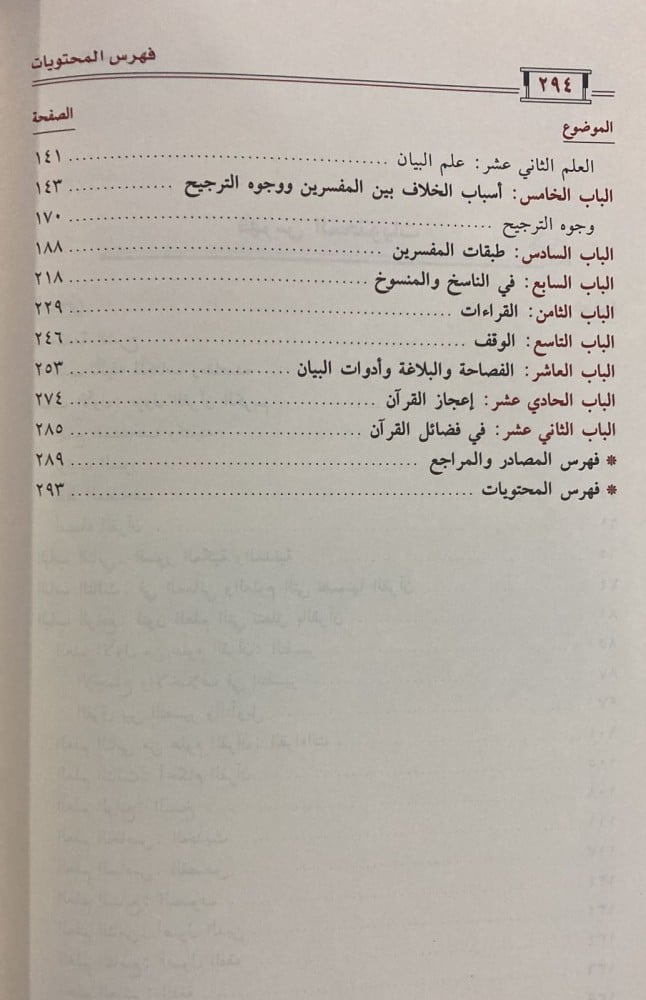 فهرس المحتويات
٢٩٤
الموضوع الصفحة
العلم الثاني عشر: علم البيان ........................ ١٤١
الباب الخامس: أسباب الخلاف بين المفسرين ووجوه الترجيح ........ ١٤٣
وجوه الترجيح ........................ ١٧٠
الباب السادس: طبقات المفسرين ........................ ١٨٨
الباب السابع: في الناسخ والمنسوخ ........................ ٢١٨
الباب الثامن: القراءات ........................ ٢٢٩
الباب التاسع: الوقف ........................ ٢٤٦
الباب العاشر: الفصاحة والبلاغة وأدوات البيان ........................ ٢٥٣
الباب الحادي عشر: إعجاز القرآن ........................ ٢٧٤
الباب الثاني عشر: في فضائل القرآن ........................ ٢٨٥
* فهرس المصادر والمراجع ........................ ٢٨٩
* فهرس المحتويات ........................ ٢٩٣